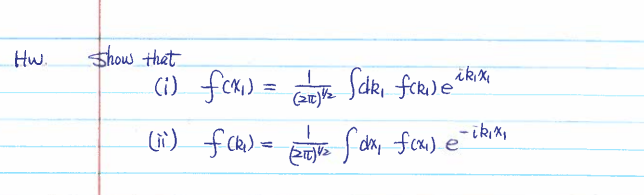 Hw. Show that
(i) f(x₁) = 1/(2π)^{1/2} ∫dk₁ f(k₁) e^{ik₁x₁}
(ii) f(k₁) = 1/(2π)^{1/2} ∫dx₁ f(x₁) e^{-ik₁x₁}